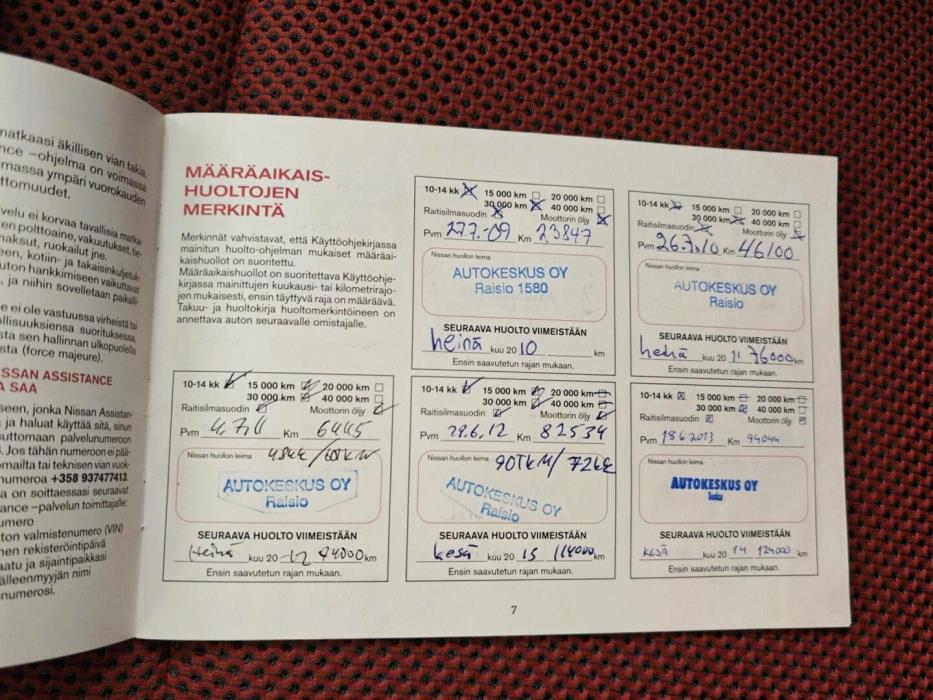 matkaasi äkillisen vian takia.
nce –ohjelma on voimassa
massa ympäri vuorokauden
ttomuudet.
velu ei korvaa tavallisia matka-
en polttoaine, vakuutukset, tie-
maksut, ruokailut jne.
een, kotiin- ja takaisinkuljetuk-
uton hankkimiseen vaikuttavat
, ja niihin sovelletaan paikalli-
e ei ole vastuussa virheistä tai
llisuuksiensa suorituksessa,
sta sen hallinnan ulkopuolella
sta (force majeure).
SSAN ASSISTANCE
A SAA
seen, jonka Nissan Assistan-
ja haluat käyttää sitä, sinun
suttomaan palvelunumeroon
. Jos tähän numeroon ei pää-
omailta tai teknisen vian vuok-
numeroa +358 937477413.
a on soittaessasi seuraavat
ance –palvelun toimittajalle:
umero
ton valmistenumero (VIN)
nen rekisteröintipäivä
aatu ja sijaintipaikkasi
älleenmyyjän nimi
numerosi.
MÄÄRÄAIKAIS-
HUOLTOJEN
MERKINTÄ
Merkinnät vahvistavat, että Käyttöohjekirjassa
mainitun huolto-ohjelman mukaiset määräai-
kaishuollot on suoritettu.
Määräaikaishuollot on suoritettava Käyttöohje-
kirjassa mainittujen kuukausi- tai kilometrirajo-
jen mukaisesti, ensin täyttyvä raja on määräävä.
Takuu- ja huoltokirja huoltomerkintöineen on
annettava auton seuraavalle omistajalle.
10-14 kk 15 000 km 20 000 km
30 000 km 40 000 km
Raitisilmasuodin Moottorin öljy
Pvm 27.7.-09 Km 23847
Nissan huollon leima
AUTOKESKUS OY
Raisio 1580
SEURAAVA HUOLTO VIIMEISTÄÄN
heinä kuu 20 10 km
Ensin saavutetun rajan mukaan.
10-14 kk 15 000 km 20 000 km
30 000 km 40 000 km
Raitisilmasuodin Moottorin öljy
Pvm 26.7.10 Km 46100
Nissan huollon leima
AUTOKESKUS OY
Raisio
SEURAAVA HUOLTO VIIMEISTÄÄN
heinä kuu 20 11 76000 km
Ensin saavutetun rajan mukaan.
10-14 kk 15 000 km 20 000 km
30 000 km 40 000 km
Raitisilmasuodin Moottorin öljy
Pvm 4.7.11 Km
Nissan huollon leima 48kk/60TKM
AUTOKESKUS OY
Raisio
SEURAAVA HUOLTO VIIMEISTÄÄN
Heinä kuu 20 12 94000 km
Ensin saavutetun rajan mukaan.
10-14 kk 15 000 km 20 000 km
30 000 km 40 000 km
Raitisilmasuodin Moottorin öljy
Pvm 29.6.12 Km 82534
Nissan huollon leima 90TKM/72kk
AUTOKESKUS OY
Raisio
SEURAAVA HUOLTO VIIMEISTÄÄN
kesä kuu 20 13 114000 km
Ensin saavutetun rajan mukaan.
10-14 kk 15 000 km 20 000 km
30 000 km 40 000 km
Raitisilmasuodin Moottorin öljy
Pvm 18.6.2013 Km 94044
Nissan huollon leima
AUTOKESKUS OY
Turku
SEURAAVA HUOLTO VIIMEISTÄÄN
KESÄ kuu 20 14 124000 km
Ensin saavutetun rajan mukaan.
7